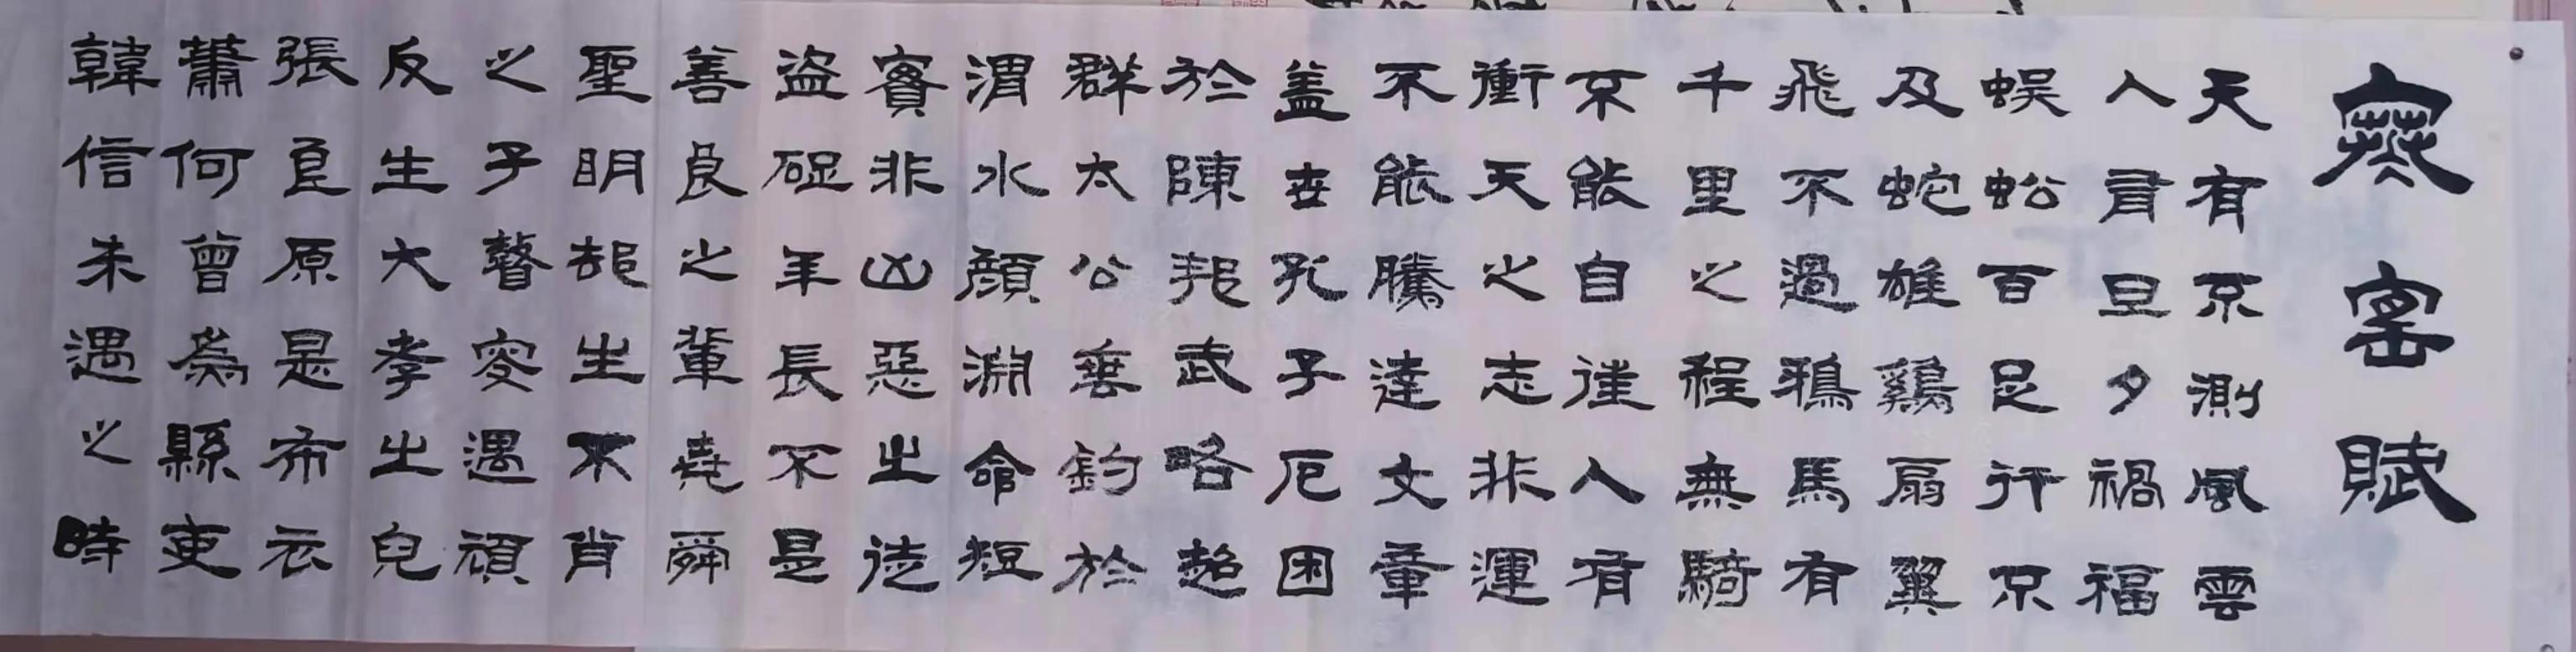 寒窑賦
天有不測風雲
人有旦夕禍福
蜈蚣百足行不
及蛇雄鷄扇翼
飛不過鴉馬有
千里之程無騎
不能自往人有
衝天之志非運
不能騰達文章
盖世孔子厄困
於陳邦武略超
群太公垂釣於
渭水顏淵命短
實非凶惡之徒
盗跖年長不是
善良之輩堯舜
聖明却生不肖
之子瞽叟遇頑
反生大孝之兒
張良原是布衣
蕭何曾為縣吏
韓信未遇之時